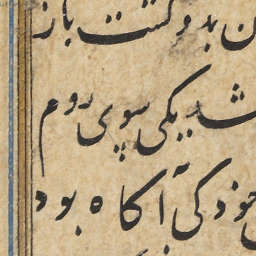 ن بدو گشت باز
شد یکی سوی روم
خود کی آگاه بود